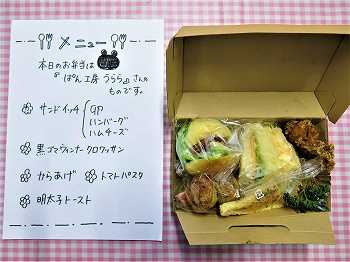 メニュー
本日のお弁当は
『ぱん工房 うらら』さんの
ものです。
サンドイッチ
GP
ハンバーグ
ハムチーズ
黒ゴマウィンナークロワッサン
からあげ
トマトパスタ
明太子トースト